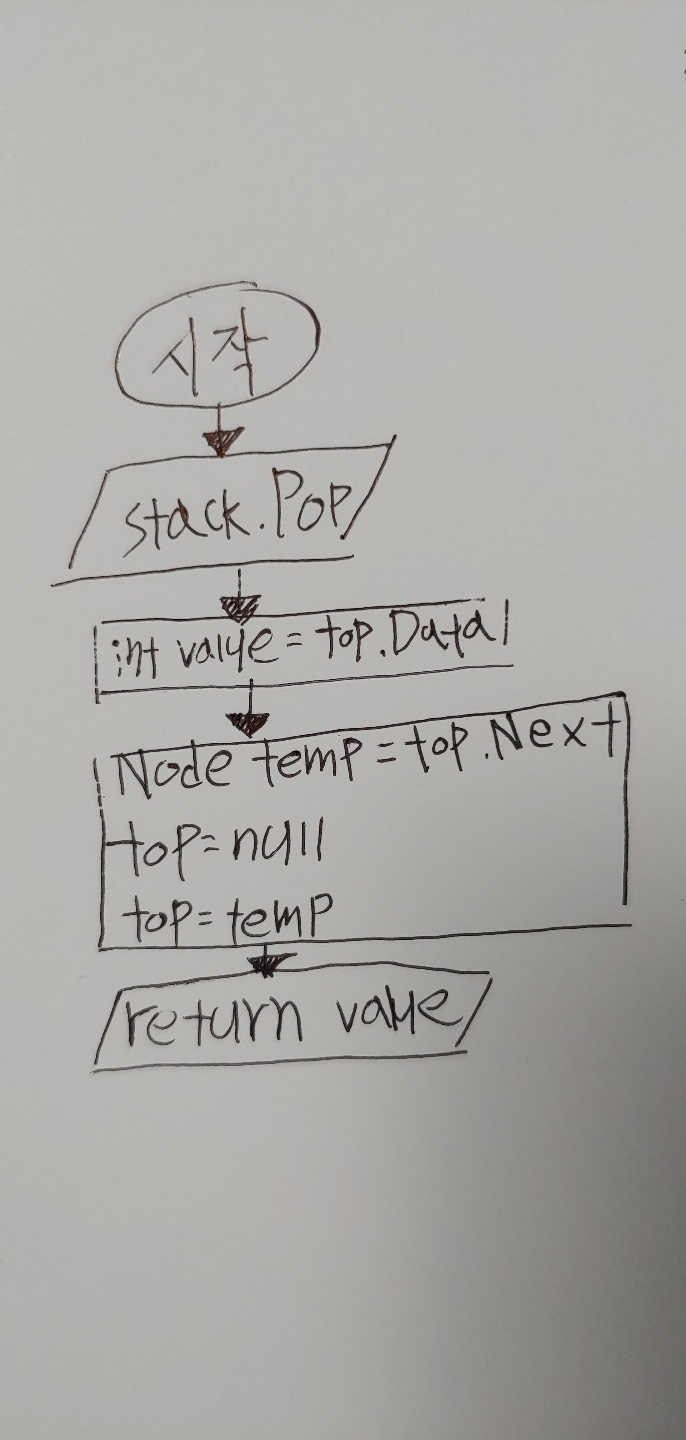 시작
stack.Pop
int value = top.Data
Node temp = top.Next
top = null
top = temp
return value